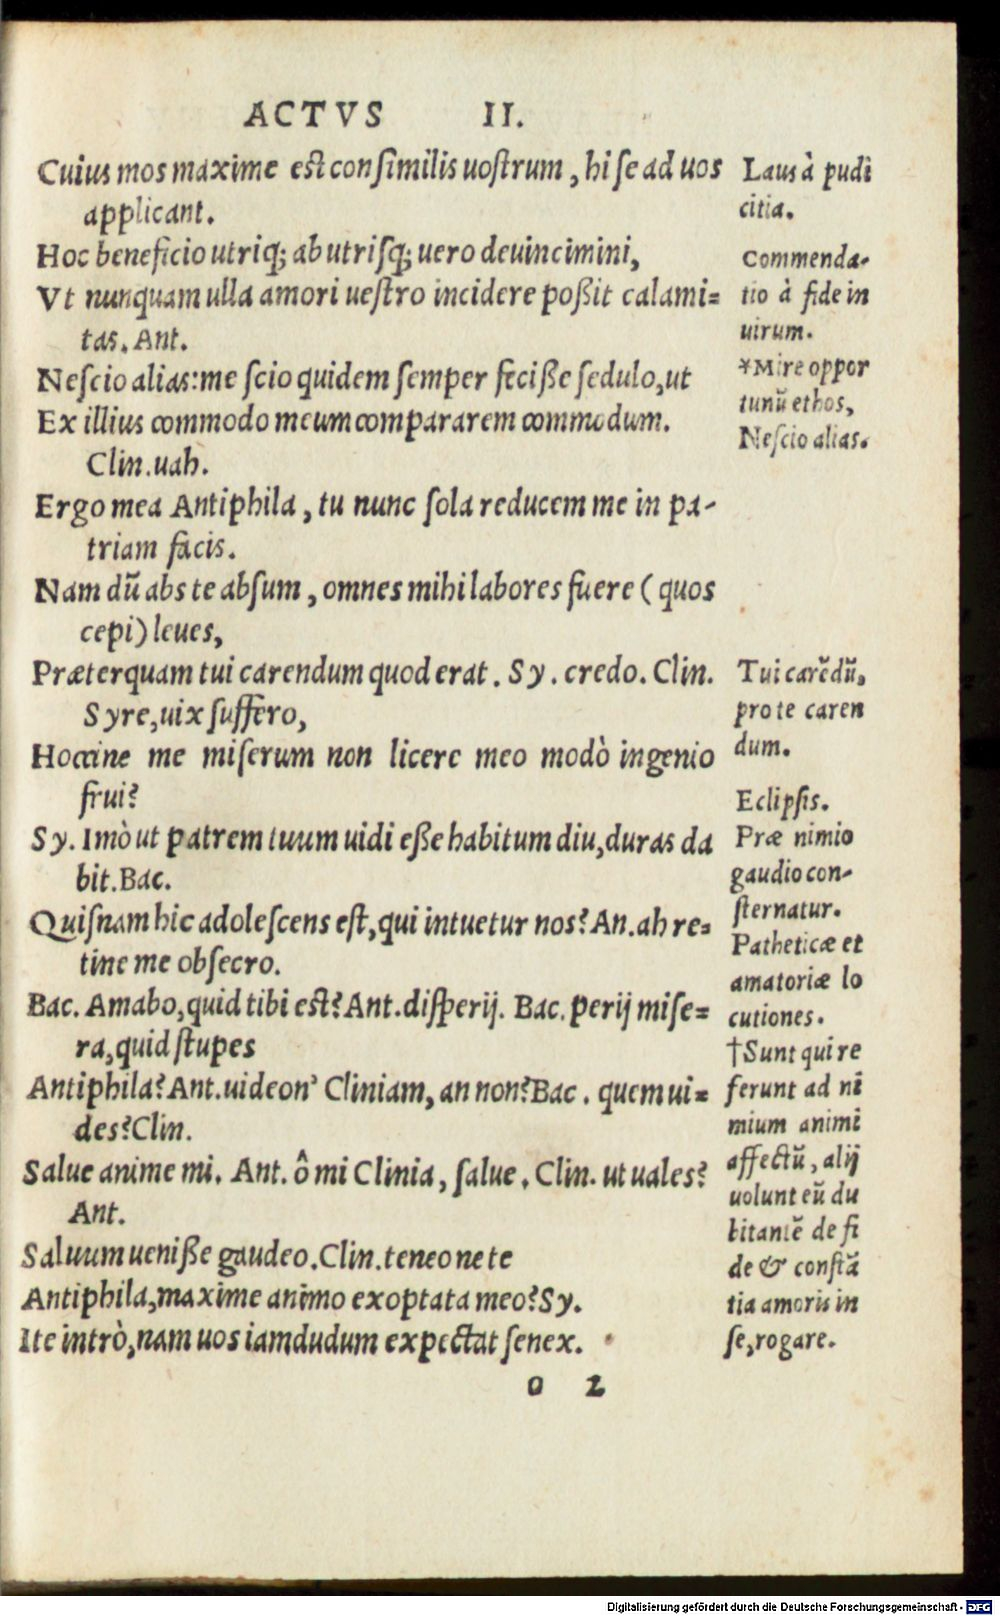 ACTVS II.
Cuius mos maxime est consimilis uostrum, hi se ad uos
applicant.
Hoc beneficio utriq; ab utrisq; uero deuincimini,
Vt nunquam ulla amori uestro incidere poßit calami=
tas. Ant.
Nescio alias: me scio quidem semper feciße sedulo, ut
Ex illius commodo meum compararem commodum.
Clin. uah.
Ergo mea Antiphila, tu nunc sola reducem me in pa-
triam facis.
Nam dũ abs te absum, omnes mihi labores fuere (quos
cepi) leues,
Præterquam tui carendum quod erat. Sy. credo. Clin.
Syre, uix suffero,
Hoccine me miserum non licere meo modò ingenio
frui?
Sy. Imò ut patrem tuum uidi eße habitum diu, duras da
bit. Bac.
Quisnam hic adolescens est, qui intuetur nos? An. ah re=
tine me obsecro.
Bac. Amabo, quid tibi est? Ant. disperij. Bac. perij mise=
ra, quid stupes
Antiphila? Ant. uideon' Cliniam, an non? Bac. quem ui=
des? Clin.
Salue anime mi. Ant. ô mi Clinia, salue. Clin. ut uales?
Ant.
Saluum ueniße gaudeo. Clin. teneone te
Antiphila, maxime animo exoptata meo? Sy.
Ite intrò, nam uos iamdudum expectat senex.
o 2
Laus à pudi
citia.
Commenda-
tio à fide in
uirum.
*Mire oppor
tunũ ethos,
Nescio alias.
Tui carẽdũ,
pro te caren
dum.
Eclipsis.
Præ nimio
gaudio con-
sternatur.
Patheticæ et
amatoriæ lo
cutiones.
†Sunt qui re
ferunt ad ni
mium animi
affectũ, alij
uolunt eũ du
bitantẽ de fi
de & constã
tia amoris in
se, rogare.
Digitalisierung gefördert durch die Deutsche Forschungsgemeinschaft - DFG